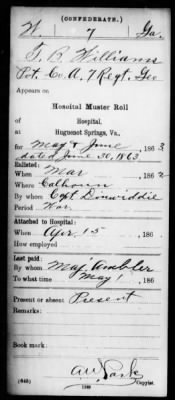 (CONFEDERATE.)
W. 7 Ga.
T. B. Williams
Pvt. Co. A, 7 Regt. Geo
Appears on
Hospital Muster Roll
of Hospital,
at
Huguenot Springs, Va.,
for May & June, 1863
dated June 30, 1863
Enlisted:
When Mar, 1862
Where Calhoun
By whom Capt Dinwiddie
Period War
Attached to Hospital:
When Apr. 15, 186
How employed
Last paid:
By whom Maj Ambler
To what time May 1, 186
Present or absent Present
Remarks:
Book mark:
(642)
Copyist.